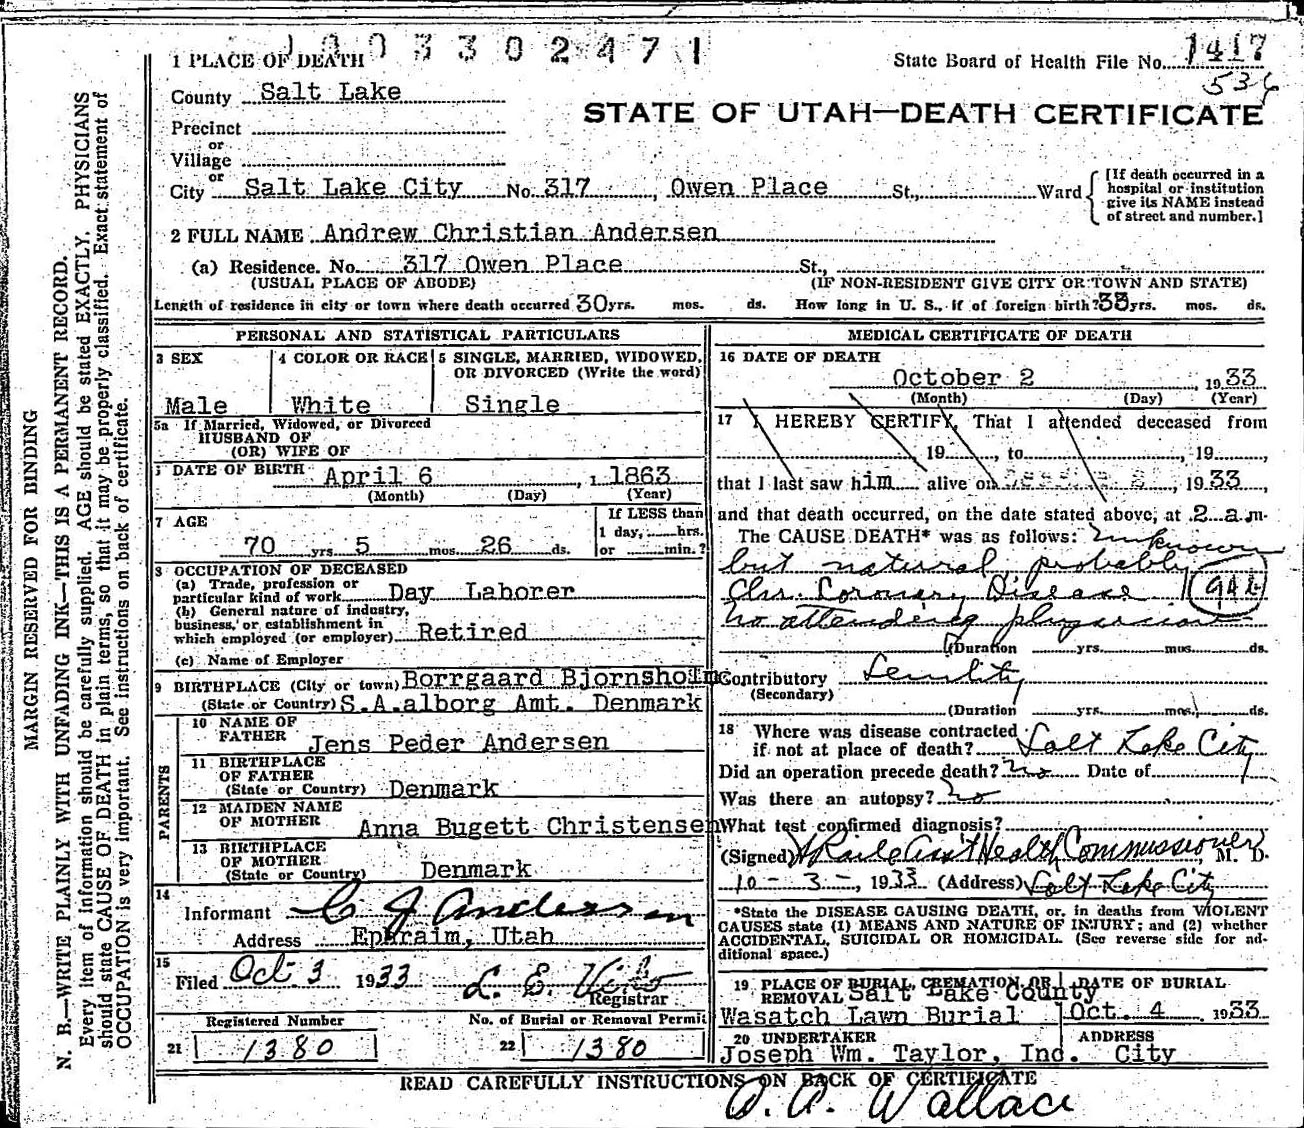 1003302471
1 PLACE OF DEATH
State Board of Health File No. 1417
536
County Salt Lake
STATE OF UTAH—DEATH CERTIFICATE
Precinct
or
Village
or
City Salt Lake City No. 317, Owen Place St., Ward
[If death occurred in a
hospital or institution
give its NAME instead
of street and number.]
2 FULL NAME Andrew Christian Andersen
(a) Residence. No. 317 Owen Place St.,
(USUAL PLACE OF ABODE) (IF NON-RESIDENT GIVE CITY OR TOWN AND STATE)
Length of residence in city or town where death occurred 30 yrs. mos. ds. How long in U. S., if of foreign birth? 33 yrs. mos. ds.
PERSONAL AND STATISTICAL PARTICULARS
3 SEX 4 COLOR OR RACE 5 SINGLE, MARRIED, WIDOWED,
OR DIVORCED (Write the word)
Male White Single
5a If Married, Widowed, or Divorced
HUSBAND OF
(OR) WIFE OF
DATE OF BIRTH April 6, 1863
(Month) (Day) (Year)
7 AGE If LESS than
1 day, hrs.
70 yrs 5 mos. 26 ds. or min.?
8 OCCUPATION OF DECEASED
(a) Trade, profession or
particular kind of work Day Laborer
(b) General nature of industry,
business, or establishment in
which employed (or employer) Retired
(c) Name of Employer
9 BIRTHPLACE (City or town) Borrgaard Bjornsholm
(State or Country) S.A.alborg Amt. Denmark
PARENTS
10 NAME OF
FATHER Jens Peder Andersen
11 BIRTHPLACE
OF FATHER
(State or Country) Denmark
12 MAIDEN NAME
OF MOTHER Anna Bugett Christensen
13 BIRTHPLACE
OF MOTHER
(State or Country) Denmark
14
Informant C J Andersen
Address Ephraim, Utah
15
Filed Oct. 3 1933 L. E.
Registrar
Registered Number No. of Burial or Removal Permit
21 1380 22 1380
MEDICAL CERTIFICATE OF DEATH
16 DATE OF DEATH
October 2, 1933
(Month) (Day) (Year)
17 I HEREBY CERTIFY, That I attended deceased from
, 19, to, 19,
that I last saw him alive on, 1933,
and that death occurred, on the date stated above, at 2 a.m.
The CAUSE DEATH* was as follows: Unknown
but natural, probably
Chr. Coronary Disease 94b
No attending physician
(Duration yrs. mos. ds.
Contributory Senility
(Secondary)
(Duration yrs. mos. ds.
18 Where was disease contracted
if not at place of death? Salt Lake City
Did an operation precede death? No Date of
Was there an autopsy? No
What test confirmed diagnosis?
(Signed) Ass't Health Commissioner, M. D.
10-3-, 1933 (Address) Salt Lake City
*State the DISEASE CAUSING DEATH, or, in deaths from VIOLENT
CAUSES state (1) MEANS AND NATURE OF INJURY; and (2) whether
ACCIDENTAL, SUICIDAL OR HOMICIDAL. (See reverse side for ad-
ditional space.)
19 PLACE OF BURIAL, CREMATION OR DATE OF BURIAL
REMOVAL Salt Lake County
Wasatch Lawn Burial Oct. 4 1933
20 UNDERTAKER ADDRESS
Joseph Wm. Taylor, Inc. City
READ CAREFULLY INSTRUCTIONS ON BACK OF CERTIFICATE
A. A. Wallace
MARGIN RESERVED FOR BINDING
N. B.—WRITE PLAINLY WITH UNFADING INK—THIS IS A PERMANENT RECORD.
Every item of information should be carefully supplied. AGE should be stated EXACTLY. PHYSICIANS
should state CAUSE OF DEATH in plain terms, so that it may be properly classified. Exact statement of
OCCUPATION is very important. See instructions on back of certificate.